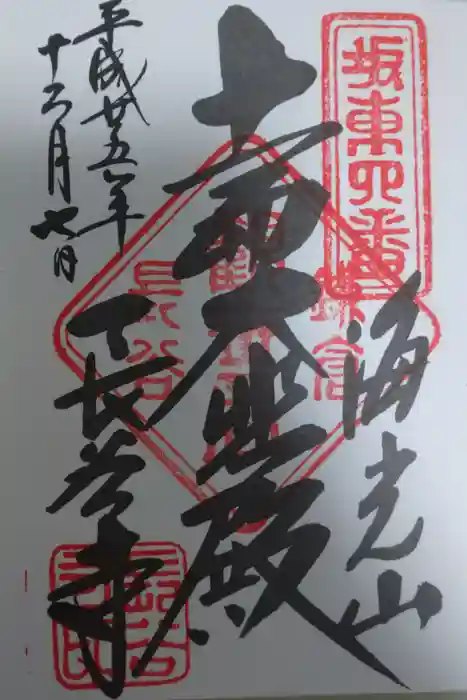 坂東四番
海光山
十一面大悲殿
長谷寺
平成廿五年
十二月七日
鎌倉
長谷